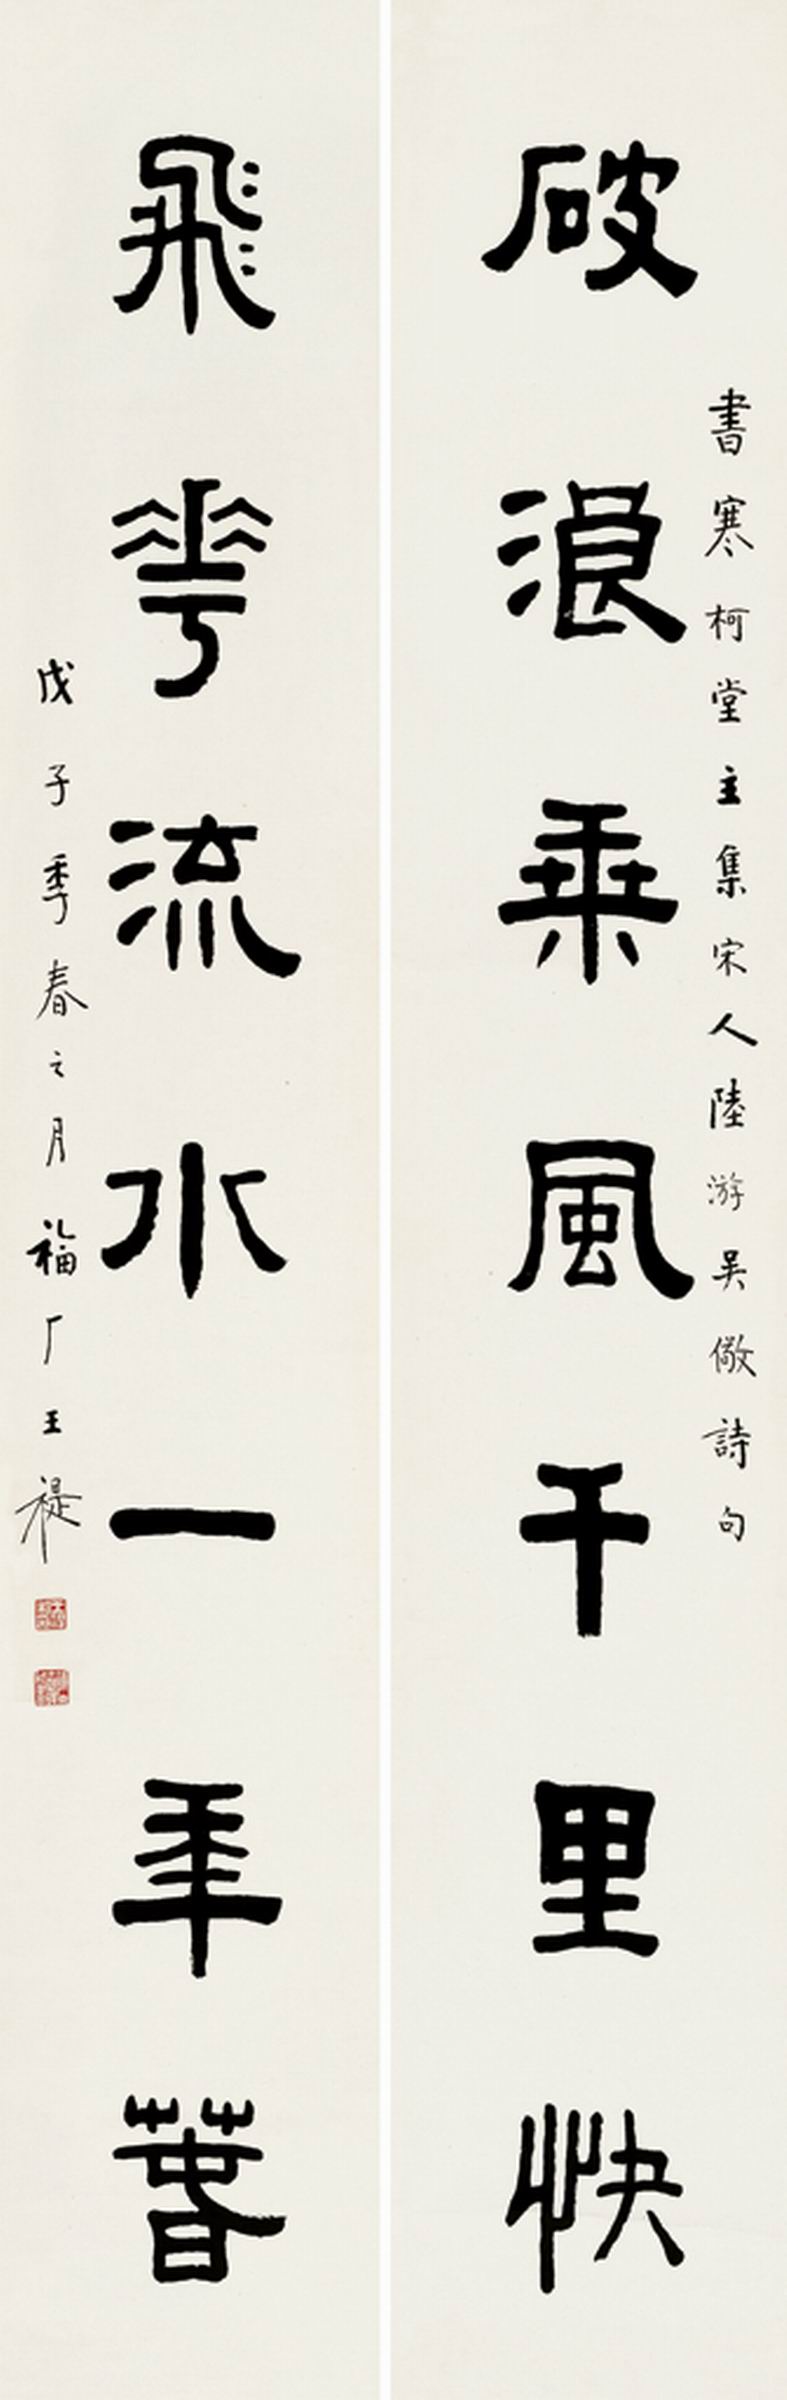 書寒柯堂主集宋人陸游吳儆詩句
破浪乘風千里快
飛華流水一年春
戊子季春之月福厂王禔